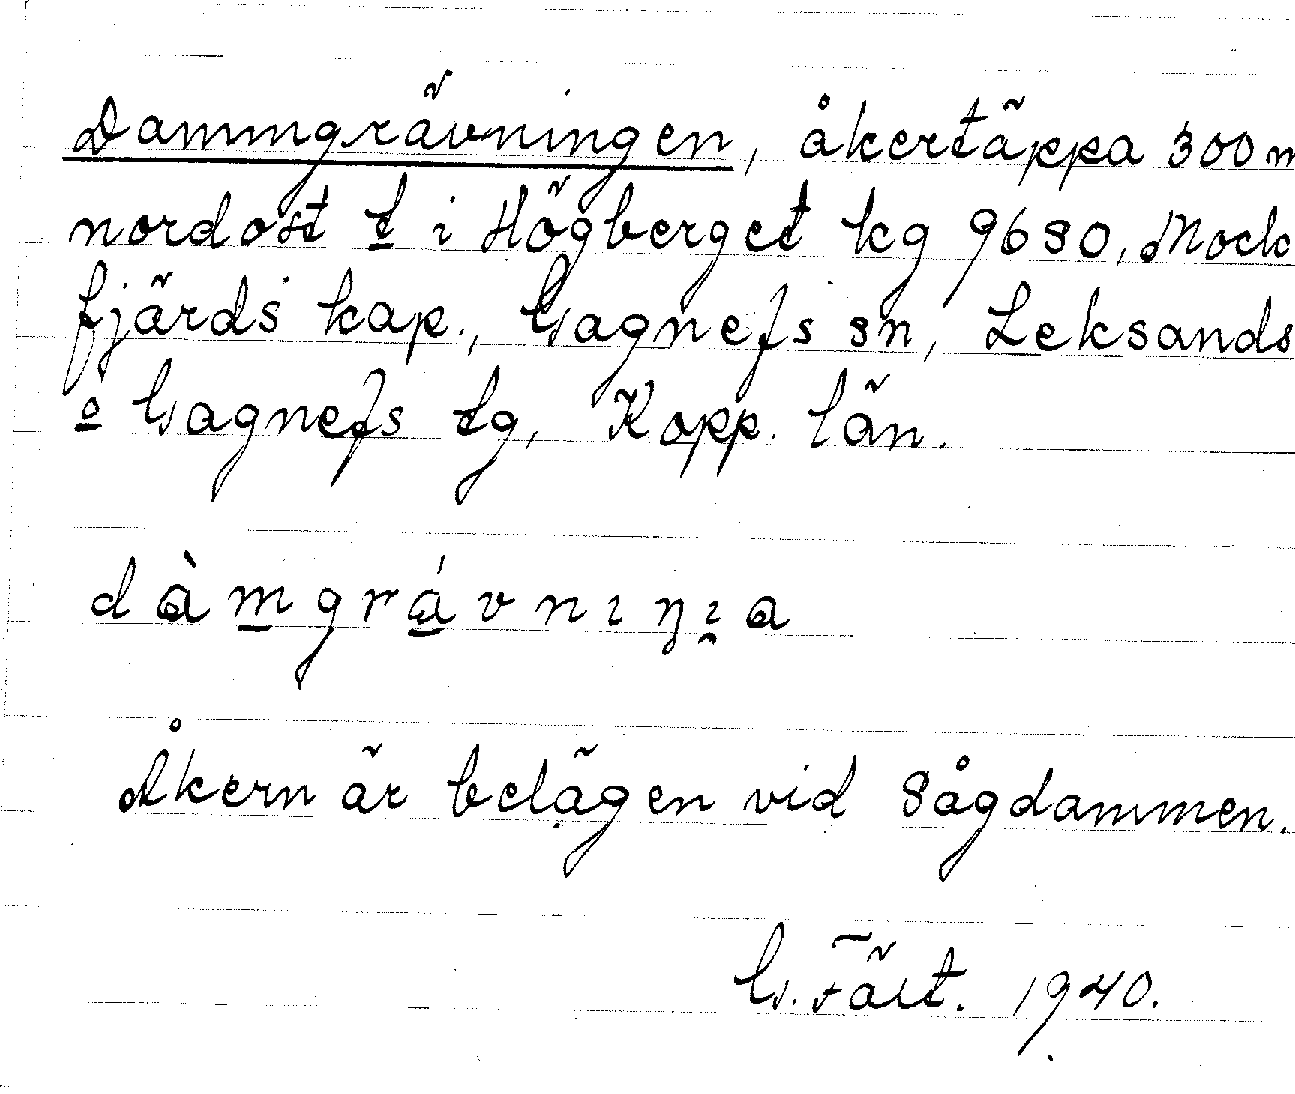 Dammgrävningen, åkertäppa 300 m
nordost t i Högberget kg 9680, Mock
fjärds kap., Gagnefs sn, Leksands
o Gagnefs tg, Kopp. län.
dàmgrávnıŋı̰a
Åkern är belägen vid Sågdammen.
G. Fält. 1940.